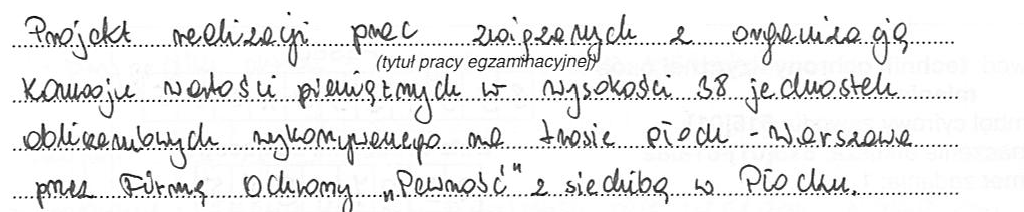 Projekt realizacji prac związanych z organizacją
(tytuł pracy egzaminacyjnej)
Konwoju wartości pieniężnych w wysokości 38 jednostek
obliczeniowych wykonywanego na trasie Płock - Warszawa
przez Firmę Ochrony „Pewność" z siedzibą w Płocku.